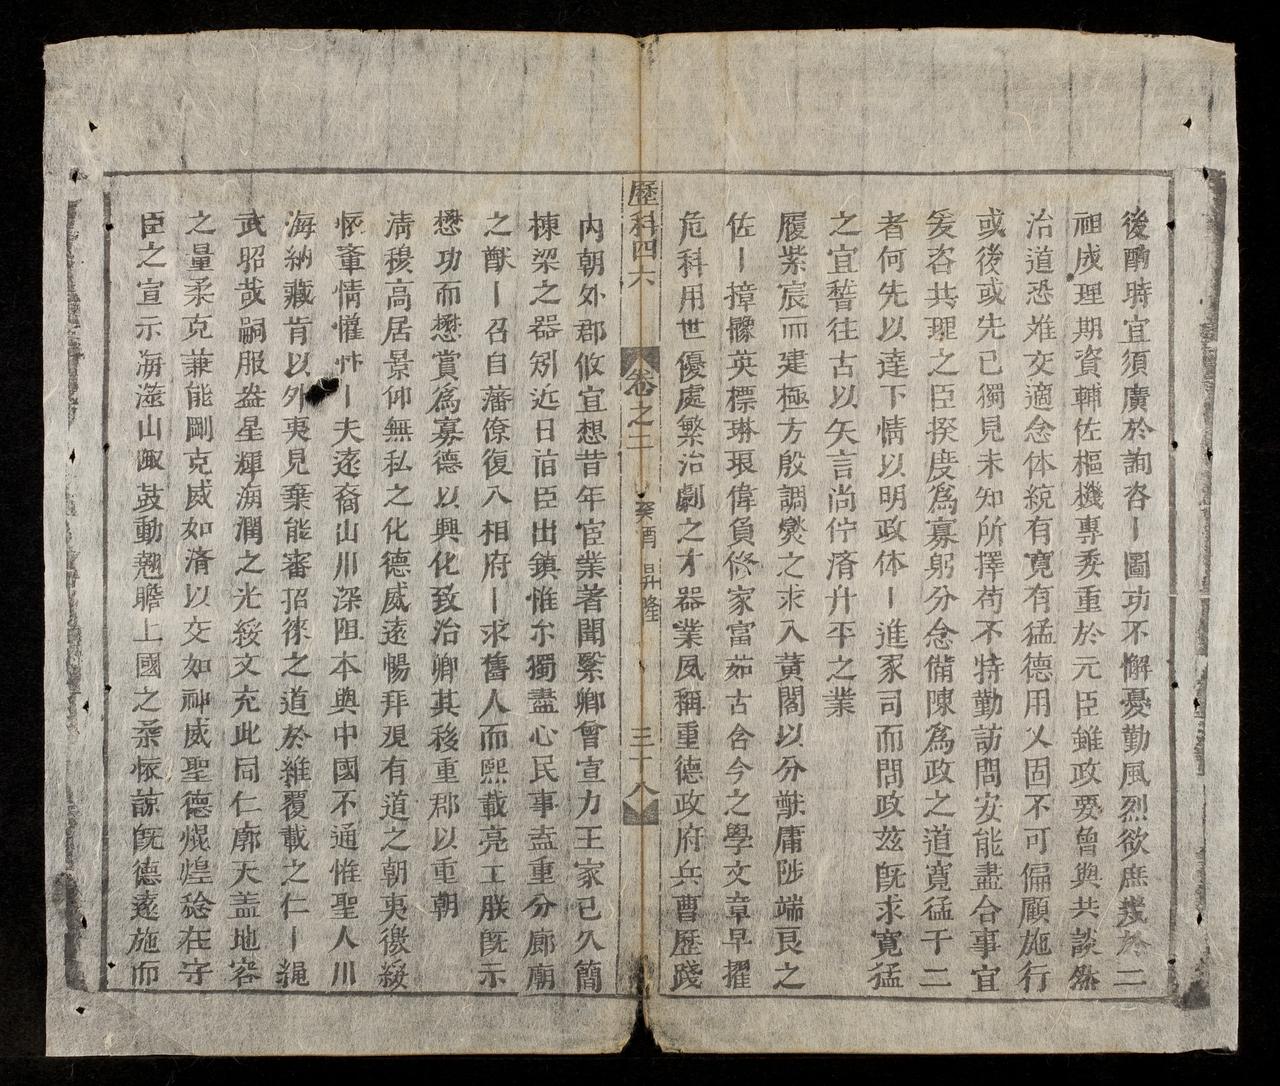 後酌時宜須廣於詢咨丨圖功不懈憂勤風烈欲庶幾於二
祖成理期資輔佐樞機專委重於元臣雖政要曾與共談然
治道恐难交適念体統有寬有猛德用乂固不可偏顧施行
或後或先已獨見未知所擇苟不特勤訪問安能盡合事宜
爰咨共理之臣揆度為寡躬分念備陳為政之道寬猛于二
者何先以達下情以明政体丨進冢司而問政玆既求寬猛
之宜誓往古以矢言尚佇済升平之業
履紫宸而建極方殷調燮之求入黃閣以分猷庸陟端艮之
佐丨撞𩦠英標琳琅偉負修家富茹古含今之學文章早擢
危科用世優處繁治劇之才器業夙稱重德政府兵曹歷踐
歷科四六 卷之二 癸酉 昇隆 三十八
内朝外郡攸宜想昔年宦業著聞繄卿曾宣力王家已久簡
棟梁之器矧近日詻臣出鎮惟尔獨盡心民事盍重分廊廟
之猷丨召自藩僚復入相府丨求舊人而熙載亮工朕既示
懋功而懋賞為寡德以興化致治卿其移重郡以重朝
清穆高居景仰無私之化德威遠暢拜覌有道之朝夷徼綏
懷輦情懽忭丨夫遠裔山川深阻本與中國不通惟聖人川
海納藏肯以外夷見棄能審招徠之道於維覆載之仁丨繩
武昭哉嗣服盎星輝海潤之光綏文充此同仁廓天蓋地容
之量柔克兼能剛克威如済以交如神威聖德焜煌稔在守
臣之宣示海澨山陬鼓動翹瞻上國之柔懷諒既德遠施而